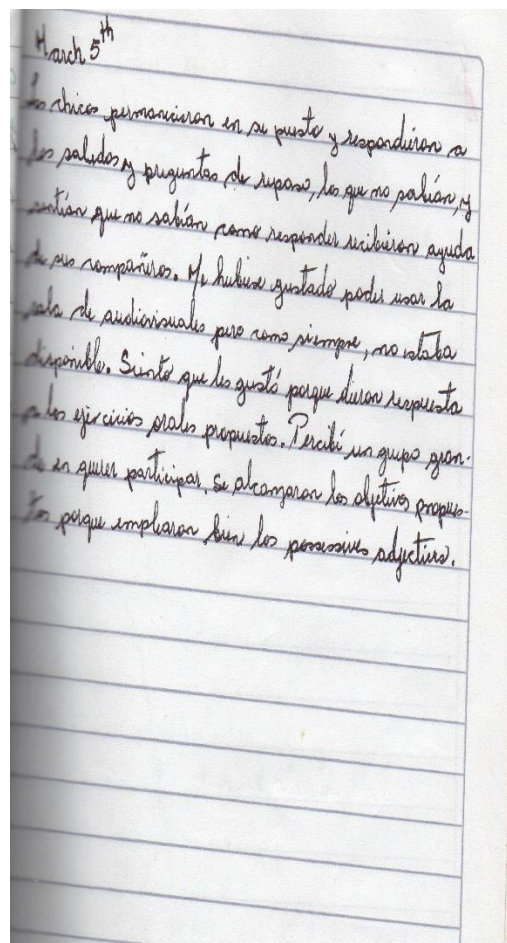 March 5th
Los chicos permanecieron en su puesto y respondieron a
los saludos y preguntas de repaso, los que no sabían, y
sentían que no sabían como responder recibieron ayuda
de sus compañeros. Me hubiese gustado poder usar la
sala de audiovisuales pero como siempre, no estaba
disponible. Siento que les gustó porque dieron respuesta
a los ejercicios orales propuestos. Percibí un grupo gran-
de en querer participar. Se alcanzaron los objetivos propues-
tos porque emplearon bien los possessives adjectives.